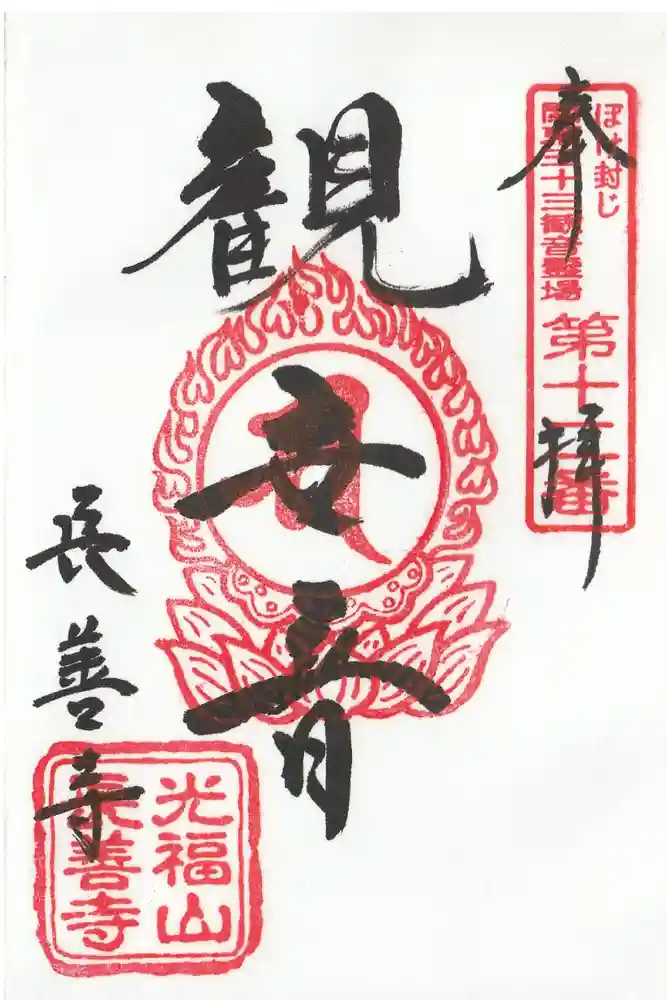 奉拝
ぼけ封じ
関東三十三観音霊場
第十
番
観世音
長善寺
光福山
長善寺